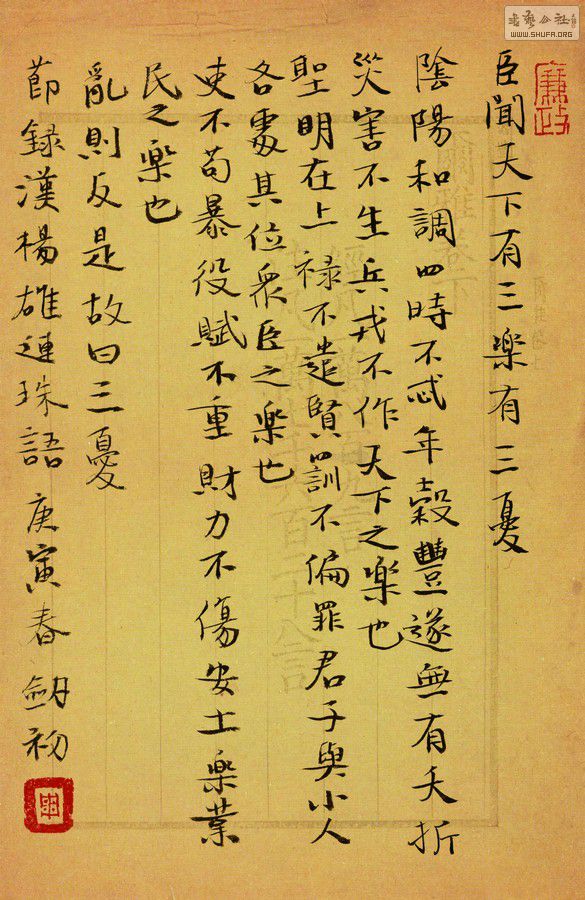 廉政
臣聞天下有三樂有三憂
陰陽和調四時不忒年穀豐遂無有夭折
災害不生兵戎不作天下之樂也
聖明在上禄不遺賢罰不偏罪君子與小人
各處其位衆臣之樂也
吏不苟暴役賦不重財力不傷安土樂業
民之樂也
亂則反是故曰三憂
節録漢楊雄連珠語庚寅春劔初
書藝公社
WWW.SHUFA.ORG